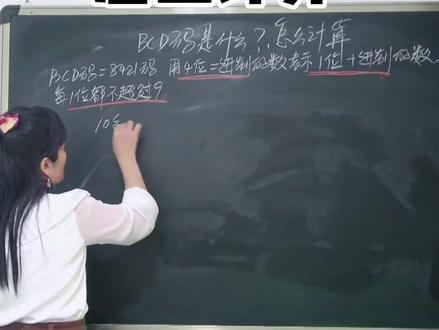 BCD码是什么?,怎么计算
BCD码=8421码 用4位二进制的数表示1位十进制的数,
每1位都不超过9
10